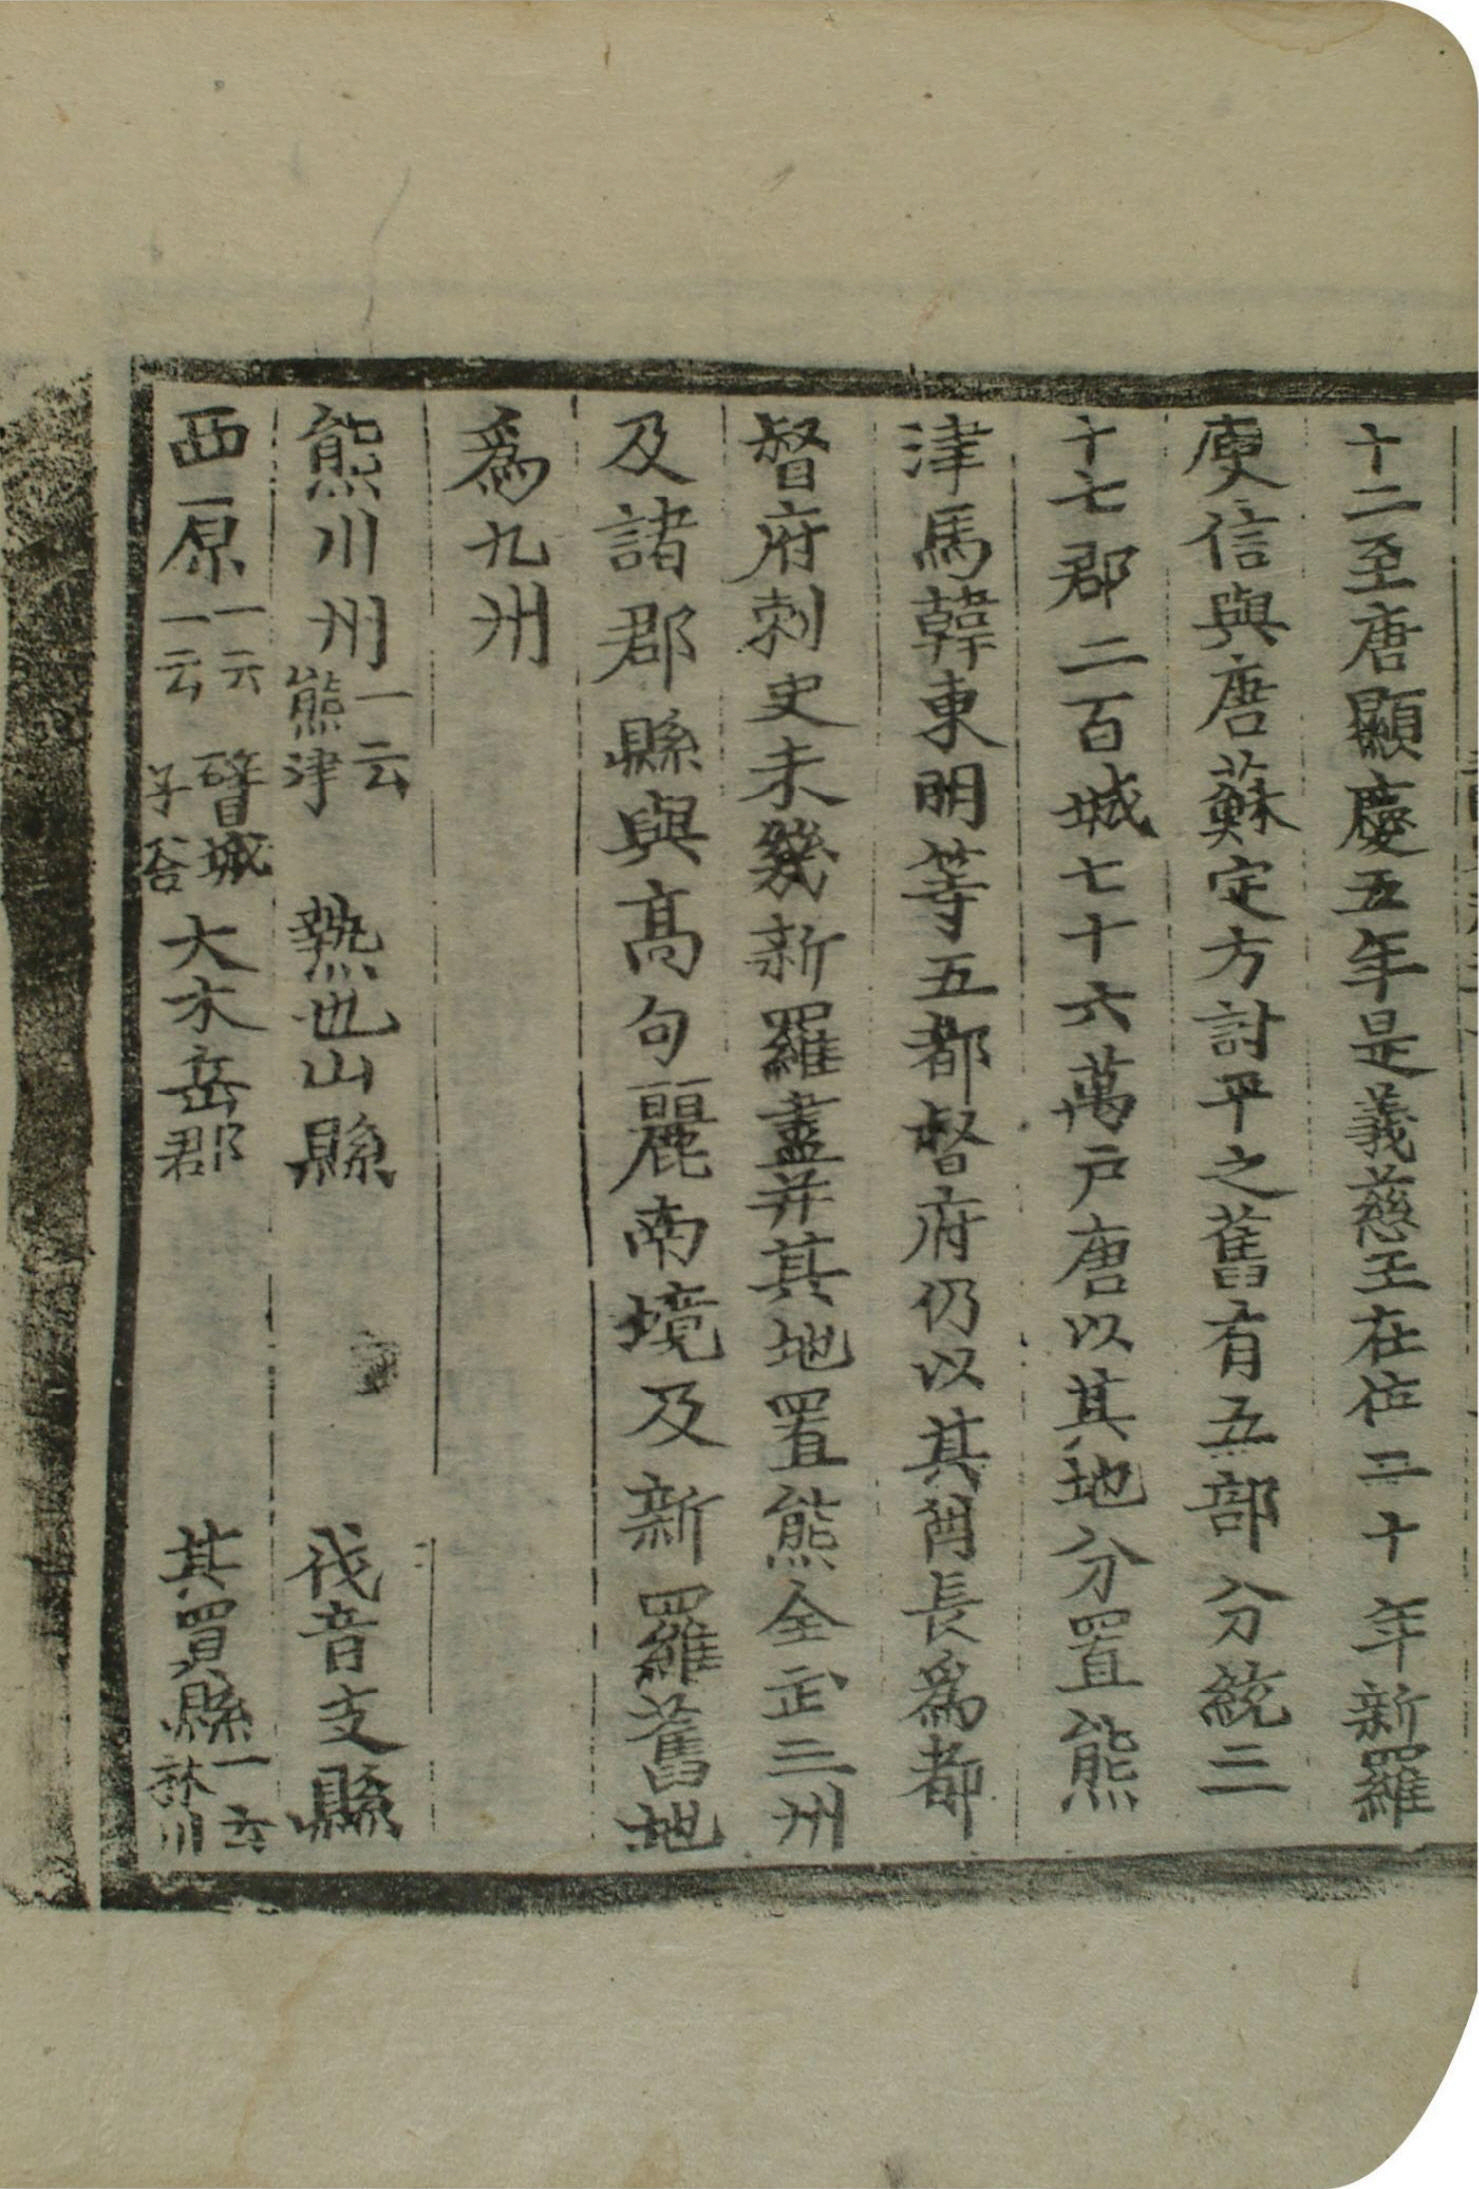 十二至唐顯慶五年是義慈王在位二十年新羅
庾信與唐蘇定方討平之舊有五部分統三
十七郡二百城七十六萬戶唐以其地分置熊
津馬韓東明等五都督府仍以其酋長爲都
督府刺史未幾新羅盡幷其地置熊全武三州
及諸郡縣與高句麗南境及新羅舊地
爲九州
熊川州一云熊津 熱也山縣 伐音支縣
西原一云𦛨城一云子谷 大木岳郡 其買縣一云林川